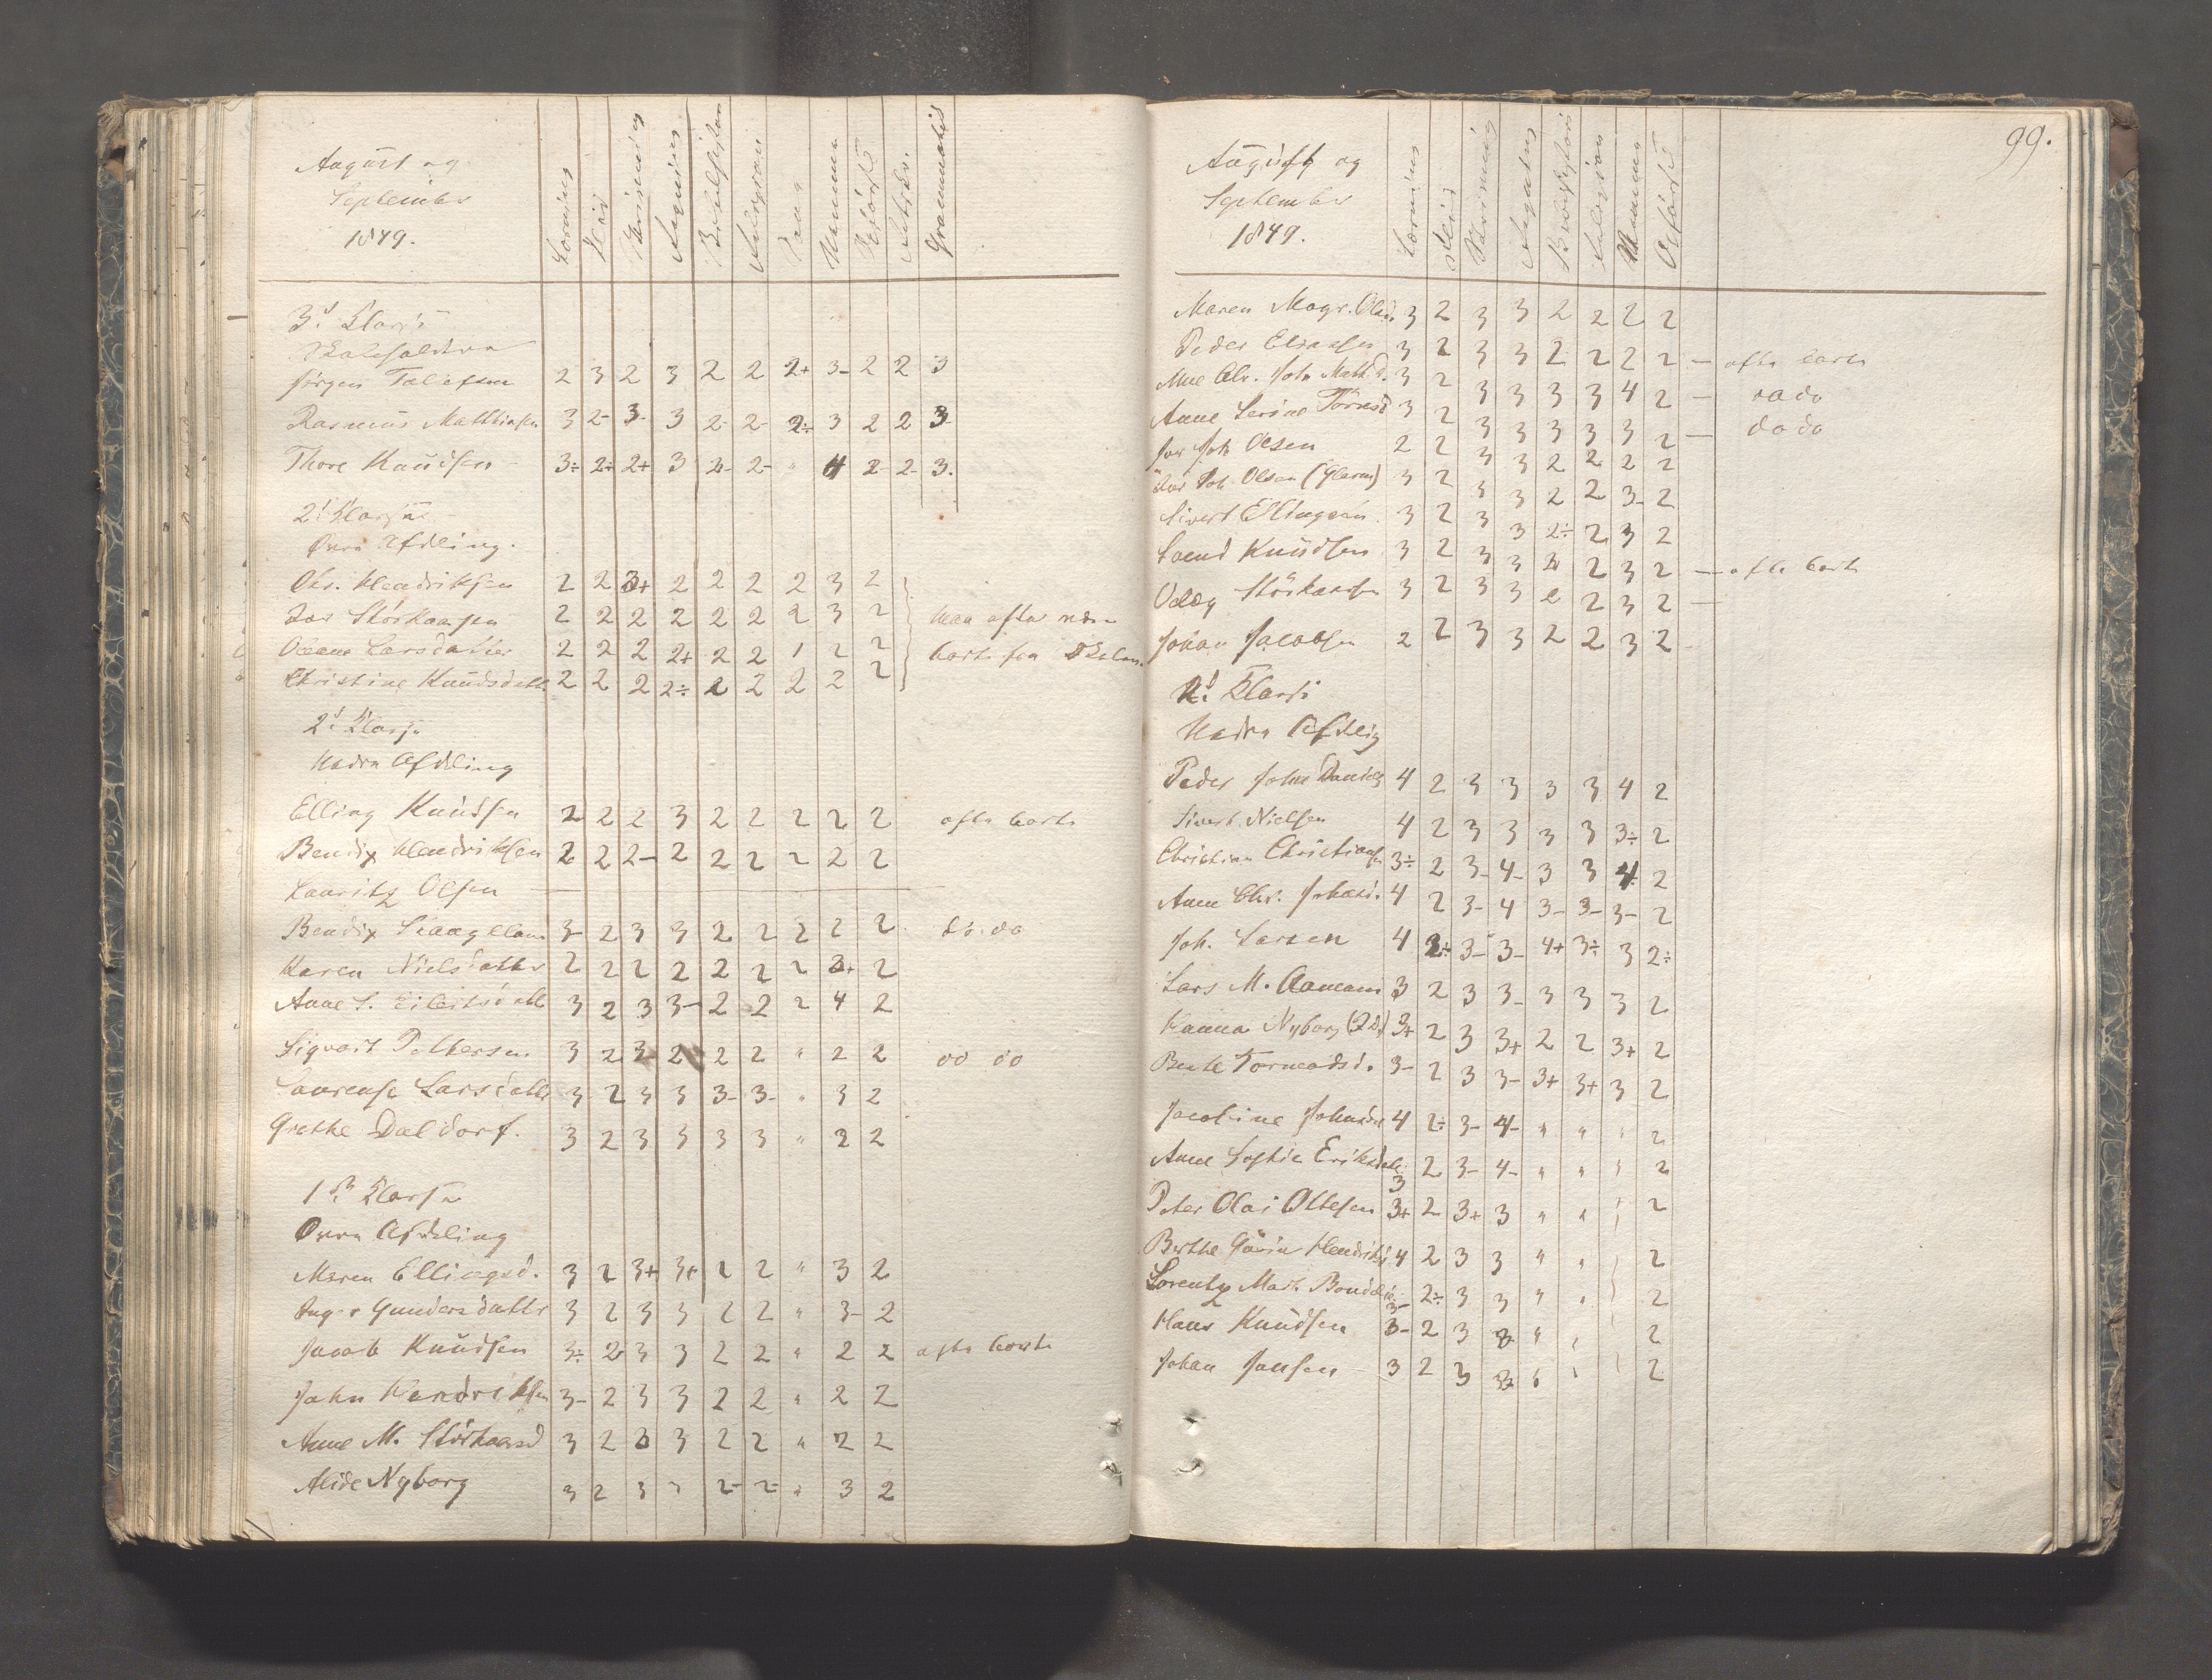 August og
September
1849.
Lærenem Flid Skrivning Regning Bibelhistorie Religion Sang Hukomm Opførsel Grammatik
3d Klasse
Jørgen Tolefsen 2 3 2 3 2 2 2+ 3- 2 2 3
Rasmus Mathiasen 3 2- 3- 3 2- 2- 2÷ 3 2 2 3
Thore Knudsen 3÷ 2÷ 2+ 3 2- 2- " 4 2 2- 3.
2d Klasse
Øvre Afdeling.
Chr. Hendriksen 2 2 3+ 2 2 2 2 3 2
Lars Störkaasen 2 2 2 2 2 2 2 3 2
Oleane Larsdatter 2 2 2 2+ 2 2 1 2 2
Christine Knudsdatt 2 2 2 2÷ 2 2 2 2 2
har ofte været
borte fra Skolen.
2d Klasse
Nedre Afdeling
Elling Knudsen 2 2 2 3 2 2 2 2 2 ofte borte
Bendix Hendriksen 2 2 2- 2 2 2 2 2 2
Lauritz Olsen —
Bendix 3- 2 3 3 2 2 2 2 2 do. do
Karen Nielsdatter 2 2 2 2 2 2 2 3+ 2
Anne S. Eilertsdatt 3 2 3 3- 2 2 2 4 2
Sigvart 3 2 3 2 2 2 " 2 2 do do
Laurense Larsdatt 3 2 3 3 3- 3- " 3 2
Grethe Daldorf. 3 2 3 3 3 3 " 2 2
1ste Klasse
Øvre Afdeling
Maren Ellingsd. 3 2 3+ 3+ 2 2 " 3 2
Inger Gundersdattr 3 2 3 3 2 2 " 3- 2
Jacob Knudsen 3÷ 2 3 3 2 2 " 2 2 ofte borte
John Hendriksen 3- 2 3 3 2 2 " 2 2
Anne M. Störkaasd 3 2 3 3 2 2 " 2 2
Alide Nyborg 3 2 3 3 2- 2- " 3 2
99.
August og
September
1849.
Lærenem Flid Skrivning Regning Bibelhistorie Religion Hukomm Opførsel
Maren Magr. Olsd. 3 2 3 3 2 2 2 2
Peder Eliasen 3 2 3 3 2 2 2 2 — ofte borte
Ane Chr. Joh Math.d. 3 2 3 3 3 3 4 2 — do do
Anne Serine Törresd 3 2 3 3 3 3 3 2 — do do
Joh Olsen 2 2 3 3 2 2 2 2
Joh Olsen 3 2 3 3 2 2 3- 2
Sivert Ellingsen 3 2 3 3 2÷ 2 3 2
Svend Knudsen 3 2 3 3 2 2 3 2 — ofte borte
Störkaasen 3 2 3 3 2 2 3 2 —
Johan Jacobsen 2 2 3 3 2 2 3 2
1d Klasse
Nedre Afdelig
Peder John Danielsen 4 2 3 3 3 3 4 2
Sivert Nielsen 4 2 3 3 3 3 3÷ 2
Christian Christiansen 3÷ 2 3- 4- 3 3 4 2
Anne Chr. Johand. 4 2 3- 4 3- 3- 3- 2
Joh. Larsen 4 2÷ 3- 3- 4+ 3÷ 3 2÷
Lars M. Aamann 3 2 3 3- 3 3 3 2
Hanna Nyborg 3+ 2 3 3+ 2 2 3+ 2
Berthe Tormodsd. 3- 2 3 3- 3+ 3+ 3 2
Jacobine Johnsdr 4 2÷ 3- 4- " " " 2
Anne Sophie Eriksdatr 3 2 3- 4- " " " 2
Peter Olai Ottesen 3+ 2 3+ 3 " " " 2
Berthe Hendriksd 4 2 3 3 " " " 2
Lorentz Mart. 3- 2÷ 3 3 " " " 2
Hans Knudsen 3- 2 3 3 " " 2
Johan Jansen 3 2 3 3 " " " 2